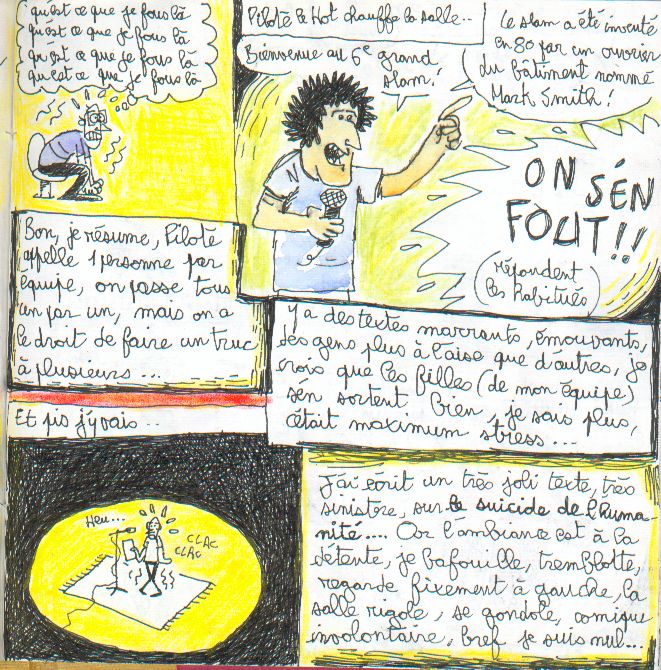 qu'est ce que je fous là
qu'est ce que je fous là
qu'est ce que je fous là
qu'est ce que je fous là
Pilote le Hot chauffe la salle..
Bienvenue au 6e grand
slam!
Le slam a été inventé
en 80 par un ouvrier
du bâtiment nommé
Mark Smith!
ON S'EN
FOUT!!
(répondent
les habitués)
Bon, je résume, Pilote
appelle 1 personne par
équipe, on passe tous
un par un, mais on a
le droit de faire un truc
à plusieurs...
Y a des textes marrants, émouvants,
des gens plus à l'aise que d'autres, je
crois que les filles (de mon équipe)
s'en sortent bien, je sais plus,
c'était maximum stress...
Et pis j'y vais..
Heu...
CLAC
CLAC
J'ai écrit un très joli texte, très
sinistre, sur le suicide de l'huma-
nité.... Or l'ambiance est à la
détente, je bafouille, tremblotte,
regarde fixement à gauche, la
salle rigole, se gondole, comique
involontaire, bref je suis nul...